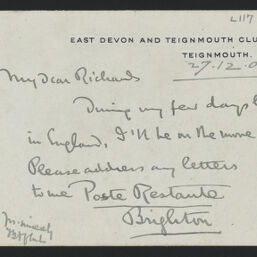 L117
EAST DEVON AND TEIGNMOUTH CLU
TEIGNMOUTH.
27.12.0
My Dear Richards
During my few days
in England, I'll be on the move
Please address any letters
to me Poste Restante
Brighton